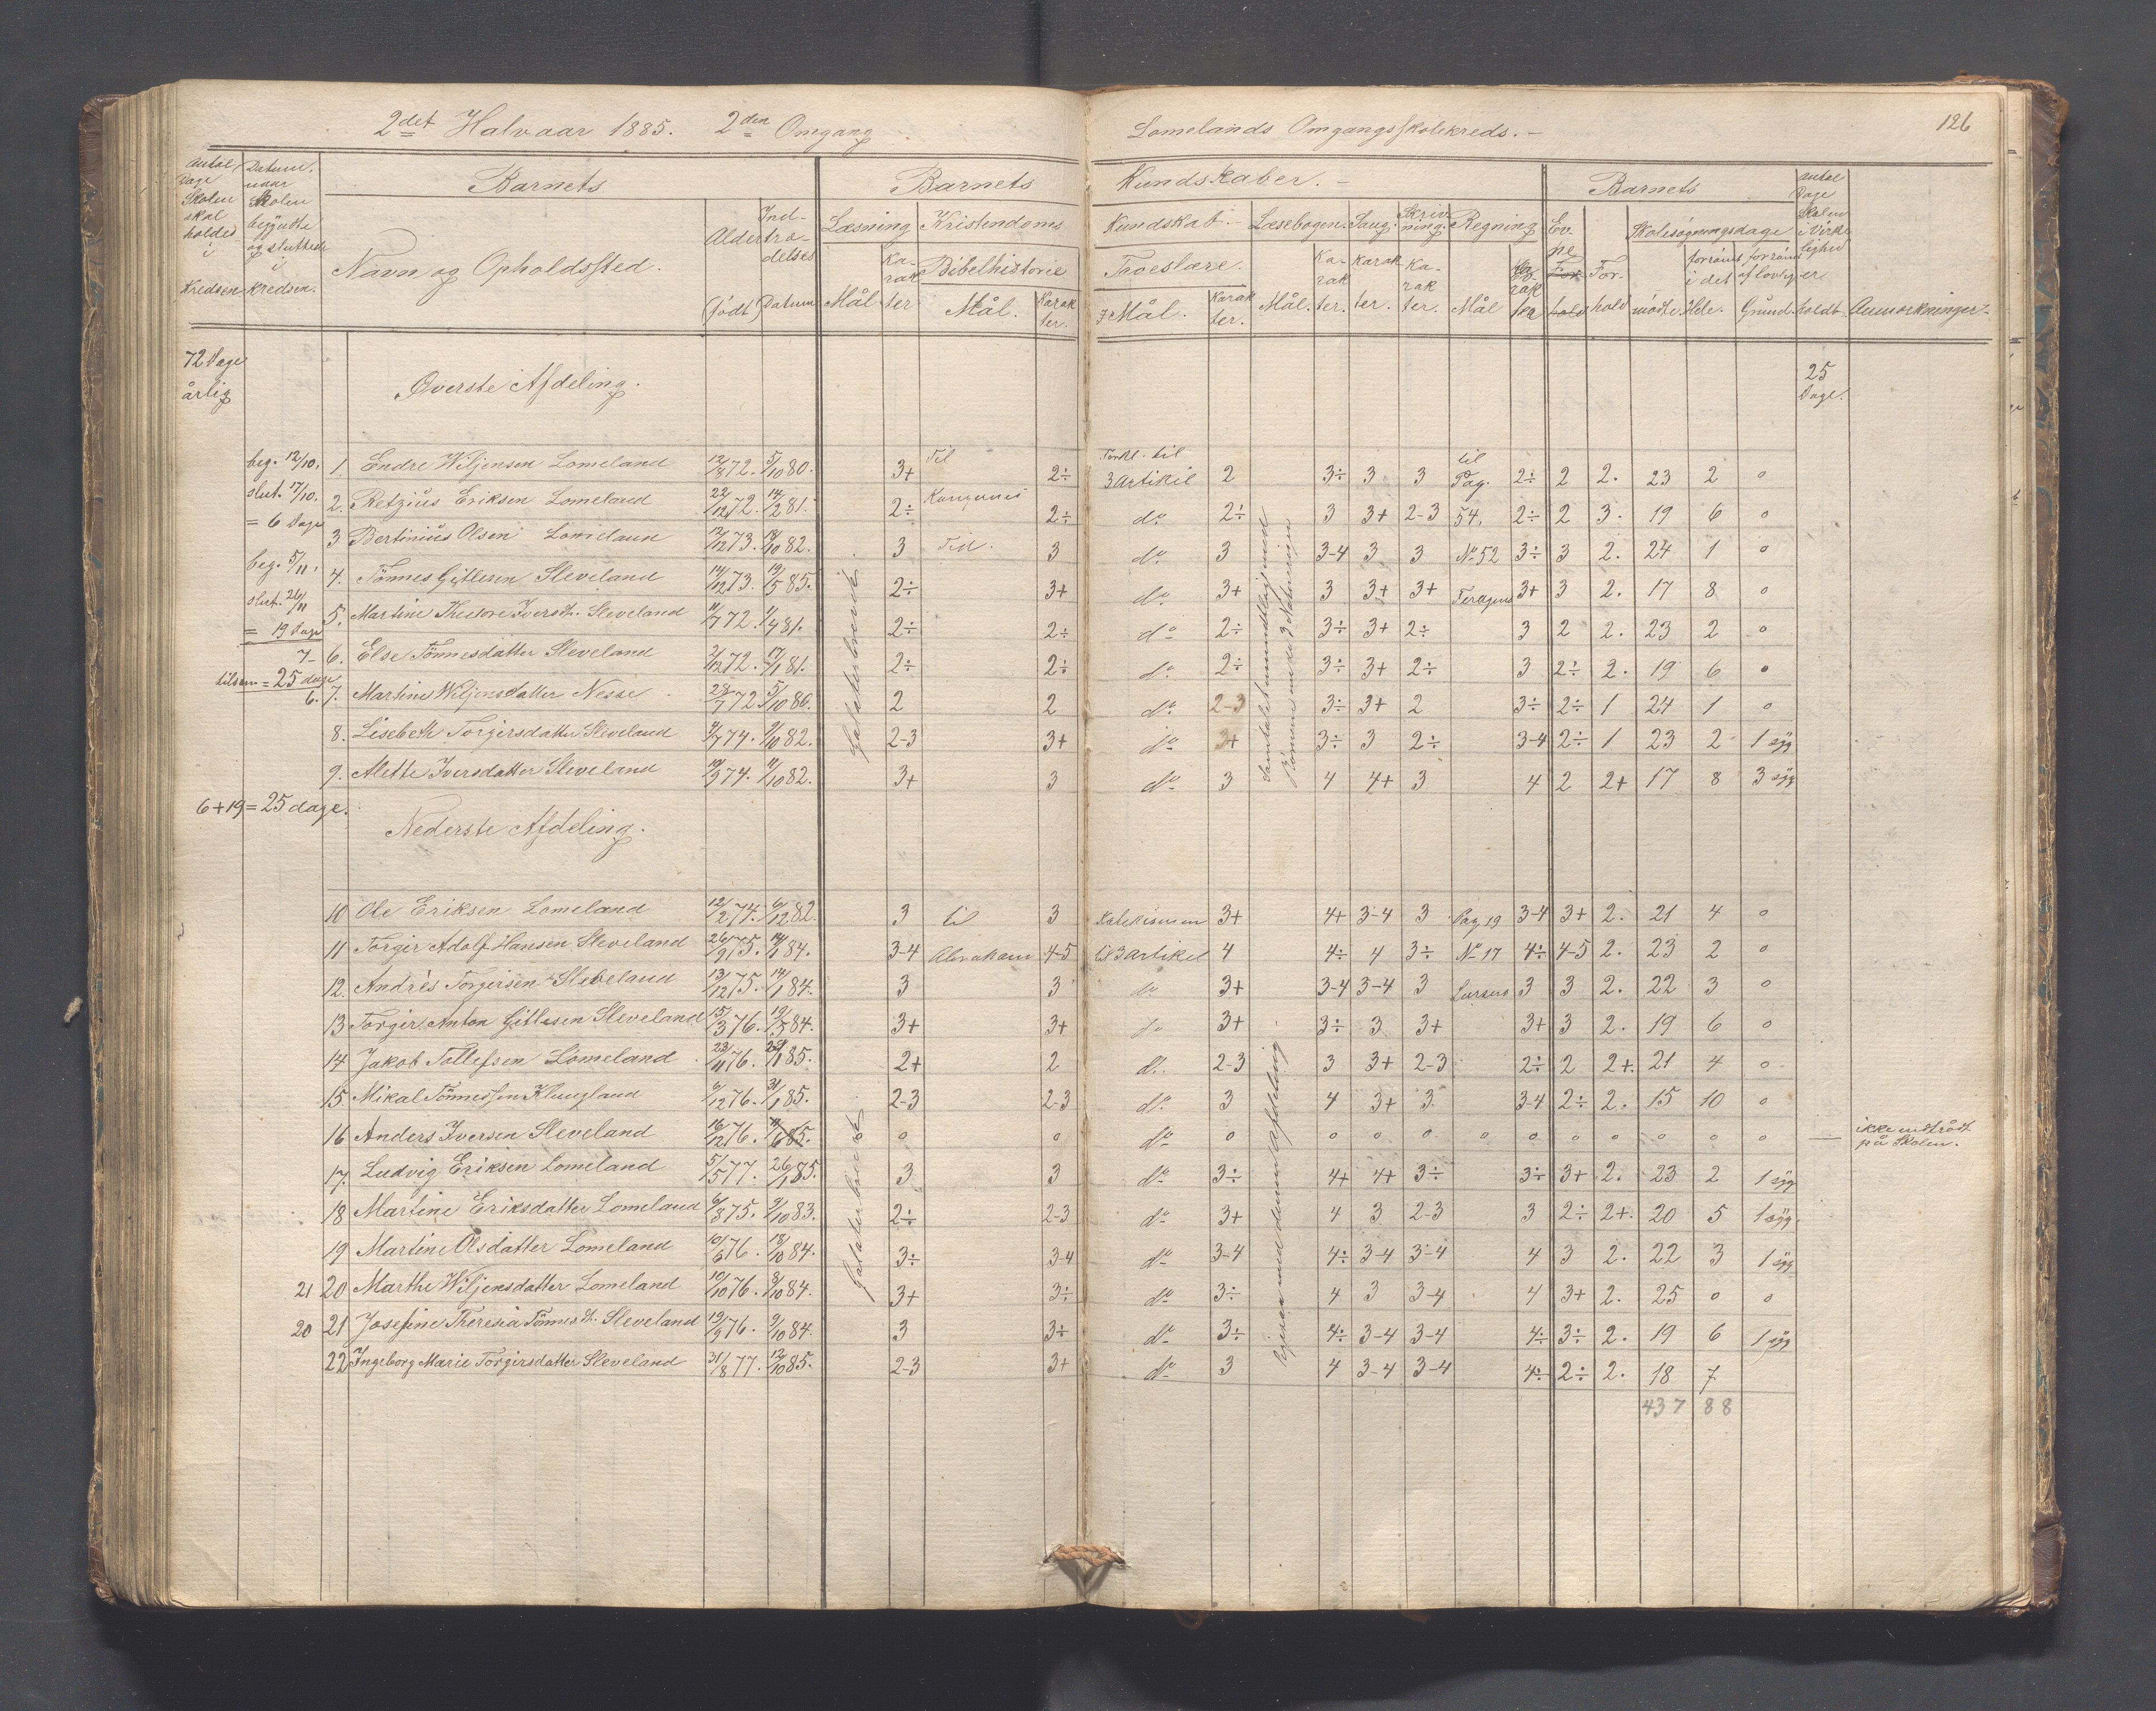 2det Halvaar 1885. 2den Omgang
Lomelands Omgangsskolekreds.
126
Antal Dage Skolen skal holdes i Kredsen
Datum, naar Skolen begyndte og sluttede i Kredsen.
Barnets
Navn og Opholdssted.
Alder (født)
Indtrædelses Datum
Barnets
Kundskaber.
Læsning
Mål
Karakter
Kristendoms
Kundskab.
Bibelhistorie
Mål.
Karakter.
Troeslære.
Mål.
Karakter.
Læsebogen.
Mål.
Karakter.
Sang.
Karakter.
Skrivning.
Karakter.
Regning
Mål
Karakter
Barnets
Evne
Forhold
Skolesøgningsdage
mødte.
forsømt i det Hele.
forsømt af lovlig Grund.
Antal Dage Skolen i Virkelighed er holdt.
Anmærkninger.
72 Dage
årlig
Øverste Afdeling.
25
Dage.
beg. 12/10.
slut. 17/10.
= 6 Dage
beg. 5/11.
slut. 26/11
= 19 Dage
tilsam = 25 dage
6+19 = 25 dage.
1. Endre Wiljensen Lomeland 12/8 72. 5/10 80. 3+ Til 2÷ Forkl. til 3 Artikel 2 3÷ 3 3 til Pag. 2÷ 2 2. 23 2 0
2. Retzius Eriksen Lomeland 22/12 72. 14/2 81. 2÷ 2÷ do 2÷ 3 3+ 2-3 54. 2÷ 2 3. 19 6 0
3 Bertinius Olsen Lomeland 12/12 73. 18/10 82. 3 Tid. 3 do 3 3-4 3 3 No 52 3÷ 3 2. 24 1 0
4. Tönnes Gitlesen Sleveland 14/12 73. 19/5 85. 2÷ 3+ do 3+ 3 3+ 3+ 3+ 3 2. 17 8 0
5. Martine Theodore Iversdt. Sleveland 11/7 72. 1/4 81. 2÷ 2÷ do 2÷ 3÷ 3+ 2÷ 3 2 2. 23 2 0
6. Else Tönnesdatter Sleveland 2/12 72. 17/1 81. 2÷ 2÷ do 2÷ 3÷ 3+ 2÷ 3 2÷ 2. 19 6 0
7. Martine Wiljensdatter Nesse 28/7 72 5/10 80. 2 2 do 2-3 3÷ 3+ 2 3÷ 2÷ 1 24 1 0
8. Lisebeth Torgirsdatter Sleveland 4/7 74. 9/10 82. 2-3 3+ do 3+ 3÷ 3 2÷ 3-4 2÷ 1 23 2 1 syg
9. Alette Iversdatter Sleveland 19/9 74. 11/10 82. 3+ 3 do 3 4 4+ 3 4 2 2+ 17 8 3 syg
Nederste Afdeling.
10 Ole Eriksen Lomeland 12/2 74. 6/12 82. 3 til 3 Katekismen 3+ 4+ 3-4 3 Pag 19 3-4 3+ 2. 21 4 0
11 Torgir Adolf Hansen Sleveland 26/9 75. 14/1 84. 3-4 Abraham 4-5 til 3 Artikel 4 4÷ 4 3÷ No 17 4÷ 4-5 2. 23 2 0
12. Andrés Torgersen Sleveland 13/12 75. 14/1 84. 3 3 do 3+ 3-4 3-4 3 3 3 2. 22 3 0
13 Torgir Anton Gitlesen Sleveland 15/3 76. 19/5 84. 3+ 3+ do 3+ 3÷ 3 3+ 3+ 3 2. 19 6 0
14 Jakob Tollefsen Lomeland 23/11 76. 29/1 85. 2+ 2 do 2-3 3 3+ 2-3 2÷ 2 2+. 21 4 0
15. Mikal Tönnessen Klungland 6/12 76. 31/1 85. 2-3 2-3 do 3 4 3+ 3 3-4 2÷ 2. 15 10 0
16 Anders Iversen Sleveland 16/12 76. 0 0 do 0 0 0 0 0 0 0 0 0 0 0 — ikke indtrådt på Skolen.
17. Ludvig Eriksen Lomeland 5/5 77. 26/1 85. 3 3 do 3÷ 4+ 4+ 3÷ 3÷ 3+ 2. 23 2 1 syg
18 Martine Eriksdatter Lomeland 6/8 75. 9/10 83. 2÷ 2-3 do 3+ 4 3 2-3 3 2÷ 2+. 20 5 1 syg.
19 Martine Olsdatter Lomeland 10/6 76. 18/10 84. 3÷ 3-4 do 3-4 4÷ 3-4 3-4 4 3 2. 22 3 1 syg
21 20 Marthe Wiljensdatter Lomeland 10/10 76. 8/10 84. 3+ 3÷ do 3÷ 4 3 3-4 4 3+ 2. 25 0 0
20 21 Josefine Theresia Tönnesdt. Sleveland 19/9 76. 9/10 84. 3 3÷ do 3÷ 4÷ 3-4 3-4 4÷ 3÷ 2. 19 6 1 syg
22 Ingeborg Marie Torgirsdatter Sleveland 31/8 77. 12/10 85. 2-3 3+ do 3 4 3-4 3-4 4÷ 2÷ 2. 18 7
437 88